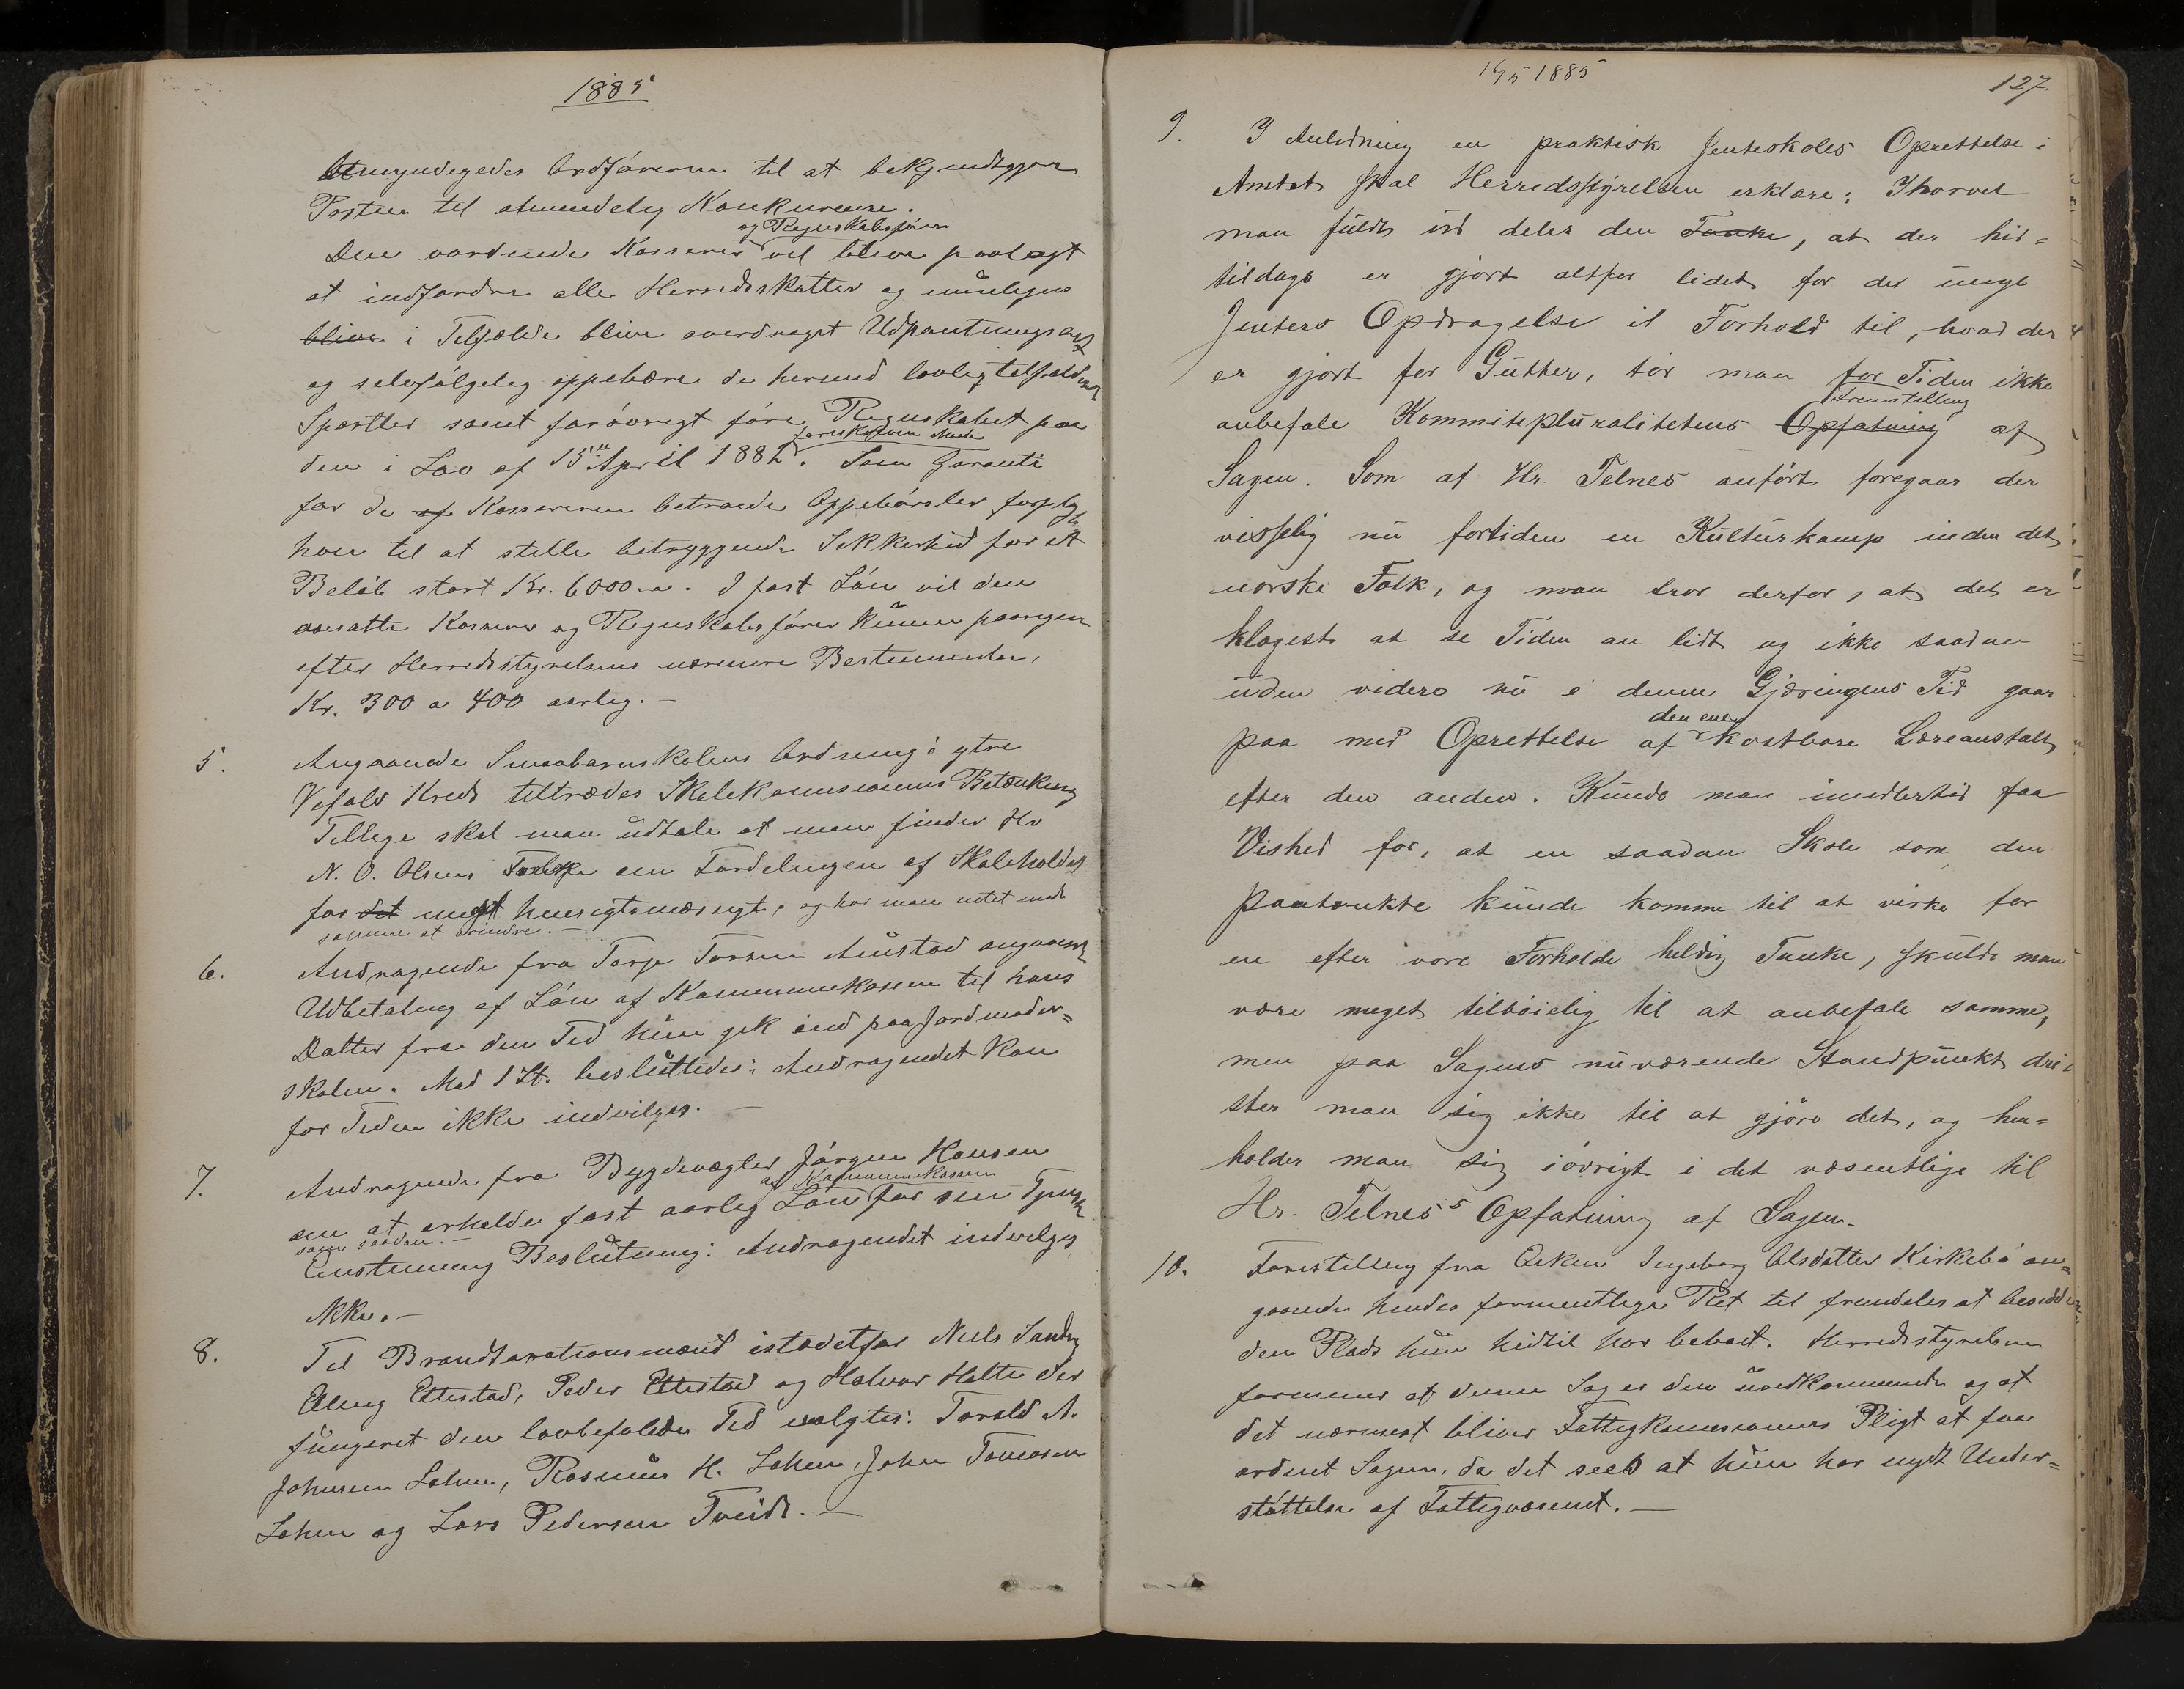 1885
bemyndigedes Ordføreren til at bekjendtgjøre
Posten til almindelig Konkurense.
og Regnskabsfører
Den vordende Kasserer vil blive paalagt
at indfordre alle Herredsskatter og muligens
blive i Tilfælde blive overdraget Udpantningsret
og selvfølgelig oppebære de hermed lovlig tilfaldende
Sportler samt forøvrigt føre Regnskabet paa
foreskrevne Maade
den i Lov af 15de April 1882. Som Garanti
for de af Kassereren betroede Oppebørsler forpligtes
han til at stille betryggende Sikkerhed for et
Beløb stort Kr. 6000.00. I fast Løn vil den
ansatte Kasserer og Regnskabsfører kunne paaregne
efter Herredsstyrelsens nærmere Bestemmelse,
Kr. 300 a 400 aarlig.—
5. Angaaende Smaabarnskolens Ordning i ytre
Vefals Kreds tiltrædes Skolekommissionens Betænkning
Tillige skal man udtale at man finder Hr
N. O. Olsens Tanke om Fordelingen af Skoleholdet
for det meget hensigtsmæssigt, og har man intet mod
samme at erindre.—
6. Andragende fra Tarje Tarsen Austad angaaende
Udbetaling af Løn af Kommunekassen til hans
Datter fra den Tid hun gik ind paa Jordmoder=
skolen. Mod 1 St. besluttedes: Andragendet kan
for Tiden ikke indvilges.—
7. Andragende fra Bygdevægter Jørgen Hansen
af Kommunekassen
om at erholde fast aarlig Løn for sin Tjeneste
som saadan.—
Enstemmig Beslutning: Andragendet indvilges
ikke.—
8. Til Brandtaxationsmænd istedetfor Niels Sandø
Elling Ettestad, Peder Ettestad og Halvor Holte der
fungeret den lovbefalede Tid valgtes: Torald A.
Johnsen Lohne, Rasmus H. Lohne, John Tomasen
Lohne og Lars Pedersen Tveide.—
19/5 1885
127.
9. I Anledning en praktisk Jenteskoles Oprettelse i
Amtet skal Herredsstyrelsen erklære: Ihvorvel
man fuldt ud deler den Tanke, at der hid=
tildags er gjort altfor lidet for de unge
Jenters Opdragelse i Forhold til, hvad der
er gjort for Gutter, tør man for Tiden ikke
Fremstilling
anbefale Kommitepluralitetens Opfatning af
Sagen. Som af Hr. Telnes anført foregaar der
visselig nu fortiden en Kulturkamp inden det
norske Folk, og man tror derfor, at det er
klogest at se Tiden an lidt og ikke saadan
uden videre nu i denne Gjæringens Tid gaar
den ene
paa med Oprettelse af kostbare Læreanstalt
efter den anden. Kunde man imidlertid faa
Vished for, at en saadan Skole som den
paatænkte kunde komme til at virke for
en efter vore Forholde heldig Tanke, skulde man
være meget tilbøielig til at anbefale samme,
men paa Sagens nuværende Standpunkt dri=
ster man sig ikke til at gjøre det, og hen=
holder man sig iøvrigt i det væsentlige til
Hr. Telnes's Opfatning af Sagen.
10. Forestilling fra Enken Ingeborg Olsdatter Kirkebø an=
gaaende hendes formentlige Ret til fremdeles at besidde
den Plads hun hidtil har beboet. Herredsstyrelsen
formener at denne Sag er den uvedkommende og at
det nærmest bliver Fattigkommissionens Pligt at faa
ordnet Sagen, da det sees at hun har nydt Under=
støttelse af Fattigvæsenet.—